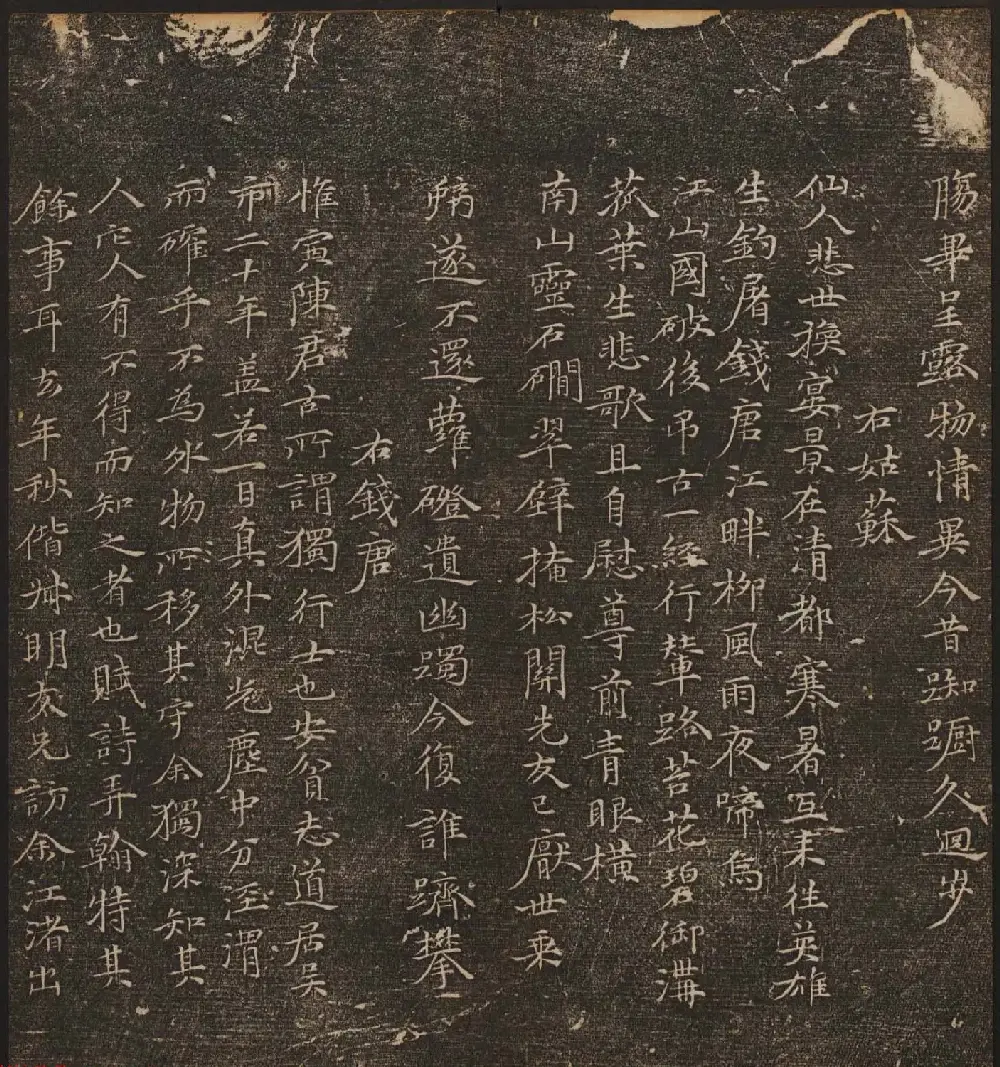 觴畢呈露物情異今昔踟蹰久迴步
右姑蘇
仙人悲世換宴景在清都寒暑互来往英雄
生釣屠錢唐江畔柳風雨夜啼烏
江山國破後吊古一經行輦路苔花碧御溝
菰葉生悲歌且自慰尊前青眼横
南山靈石磵翠壁掩松關先友已厭世乘
遂不還蘿磴遺幽躅今復誰躋攀
右錢唐
惟寅陳君古所謂獨行士也安貧志道居吴
市二十年盖若一日真外混光塵中分涇渭
而確乎不為外物所移其守余獨深知其
人它人有不得而知之者也賦詩弄翰特其
餘事耳去年秋偕叔明友兄訪余江渚出